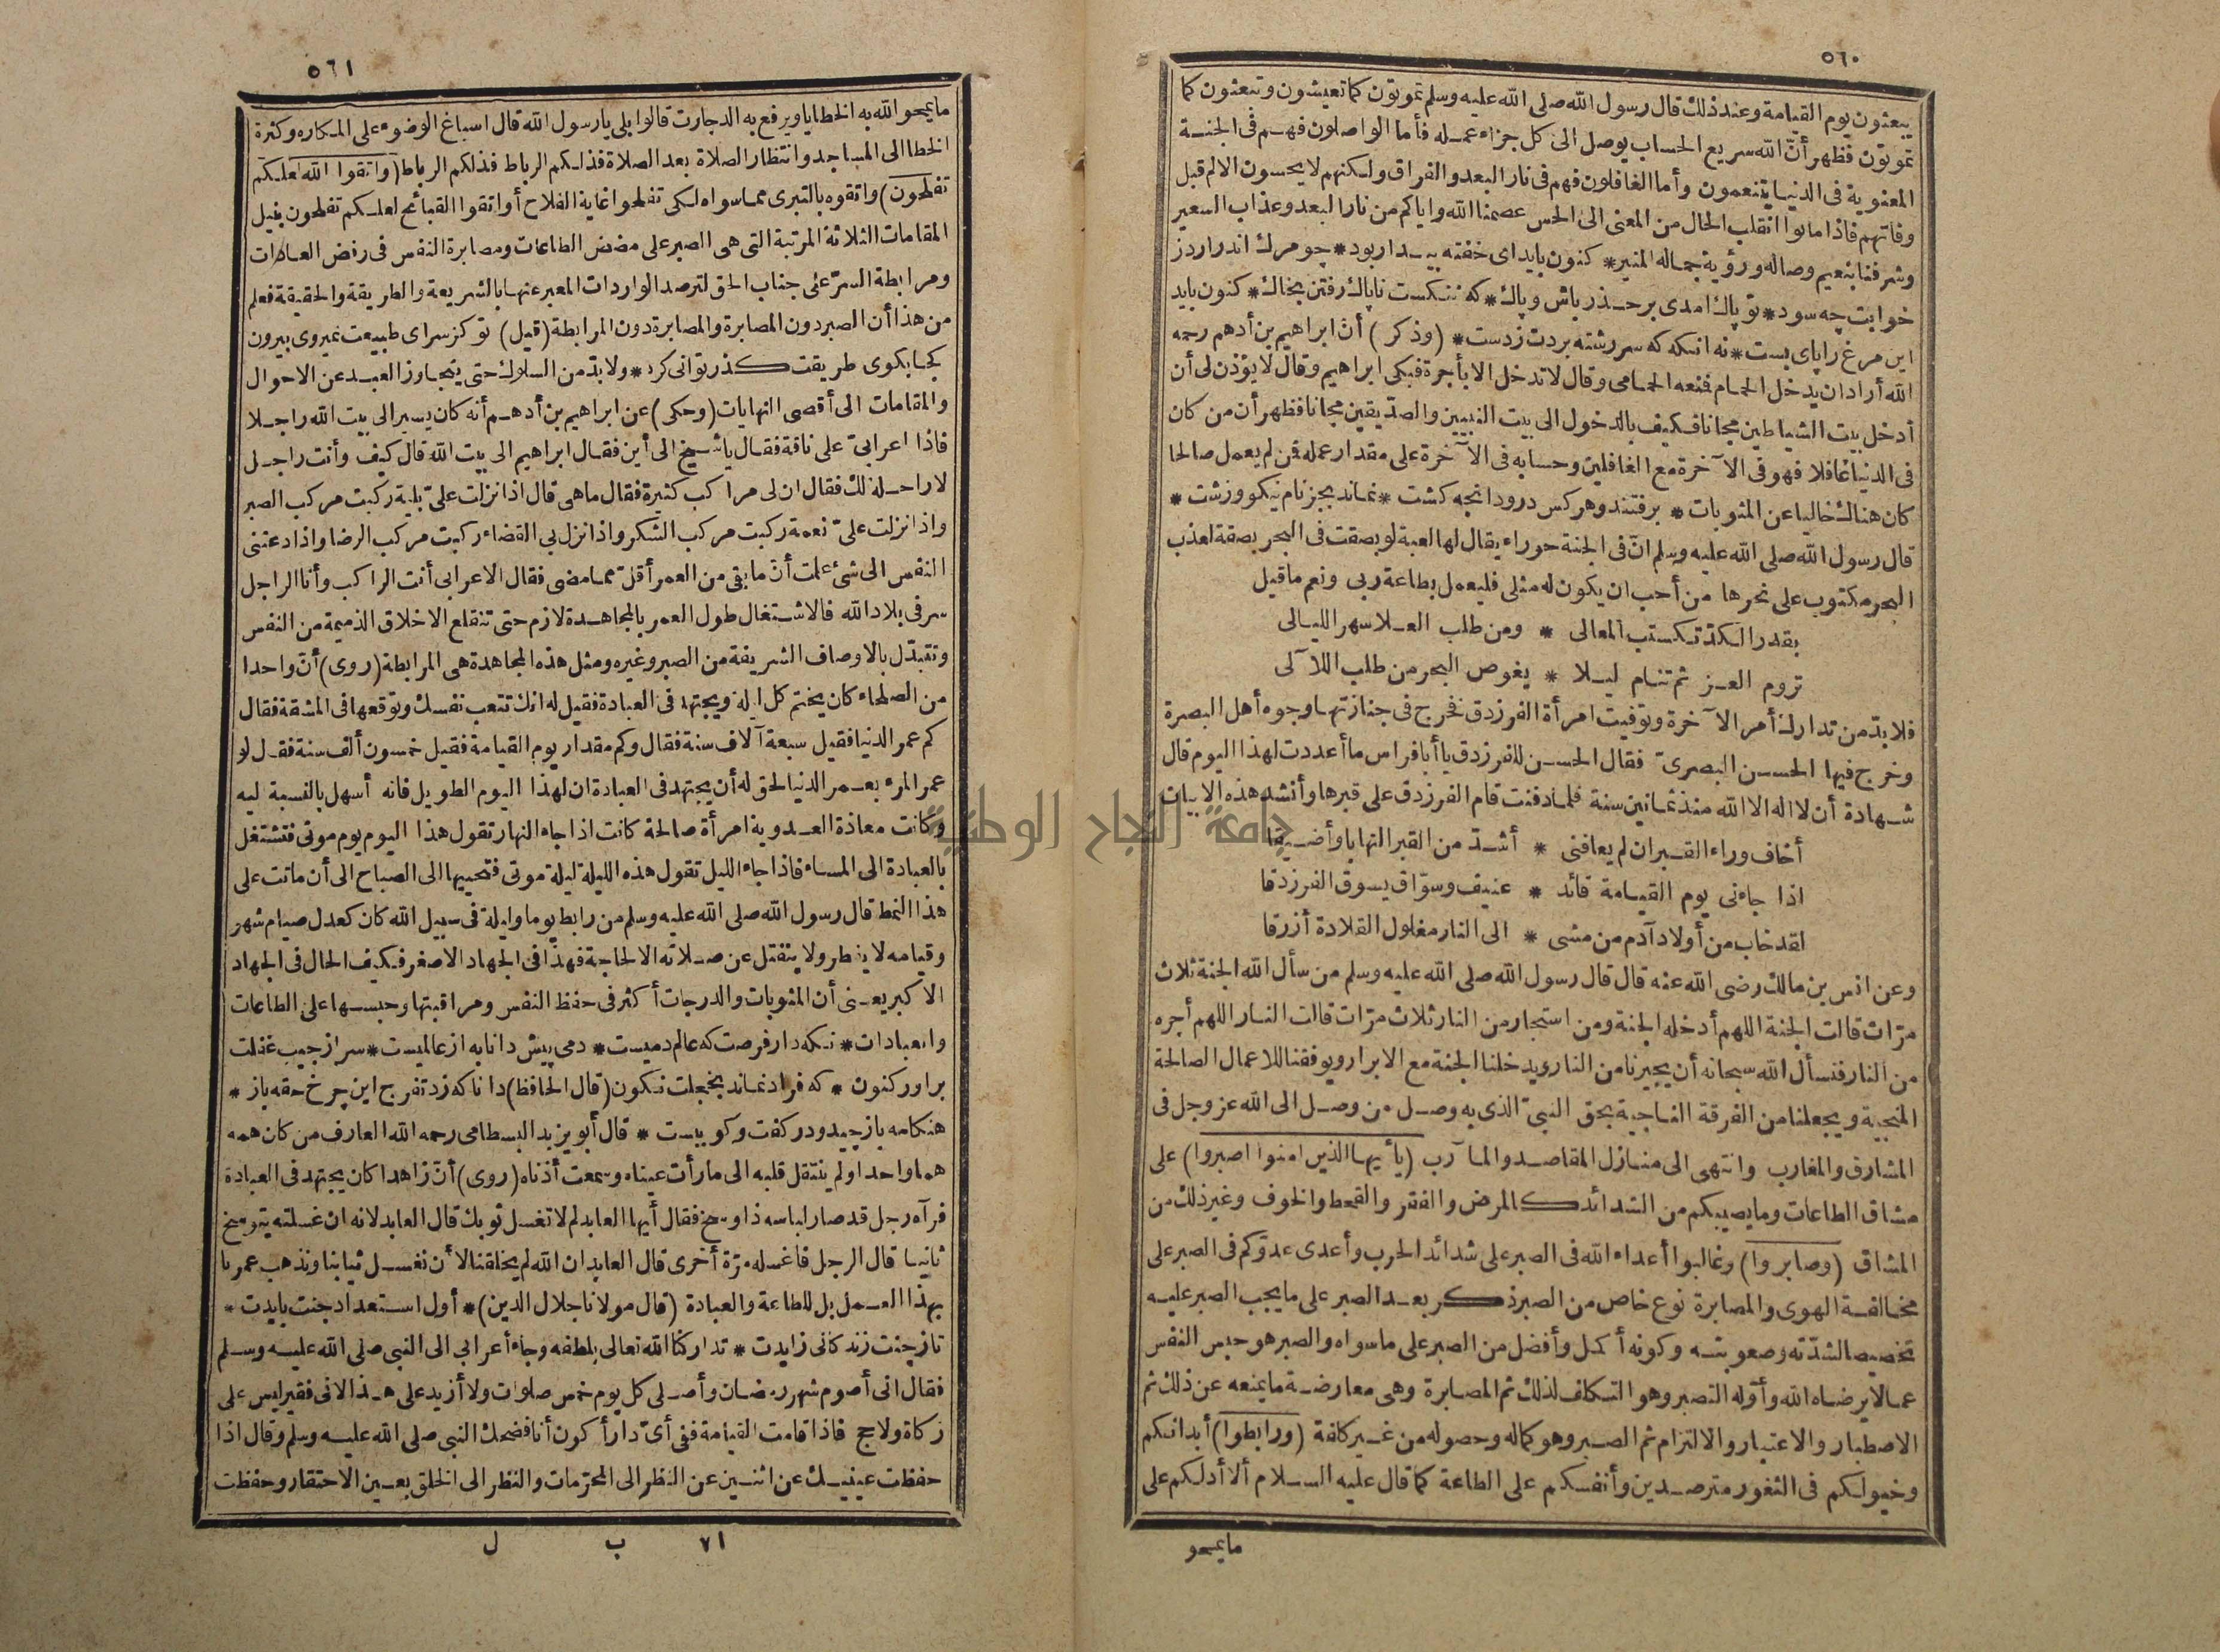 ٥٦٠
يبعثون يوم القيامة وعند ذلك قال رسول الله صلى الله عليه وسلم تموتون كما تعيشون وتبعثون كما
تموتون فظهر أنّ الله سريع الحساب يوصل الى كل جزاء عمله فأما الواصلون فهم فى الجنة
المعنوية فى الدنيا يتنعمون وأما الغافلون فهم فى نار البعد والفراق ولكنهم لا يحسون الالم قبل
وفاتهم فاذا ماتوا انقلب الحال من المعنى الى الحس عصمنا الله واياكم من نار البعد وعذاب السعير
وشرفنا بنعيم وصاله ورؤية جماله المنير * كنون بايداى خفته بيدار بود * چو مرك اندر اردز
خوابت چه سود * تو پاك امدى برحذر باش وپاك * كه ننكست ناپاك رفتن بخاك * كنون بايد
اين مرغ راپاى بست * نه انكه كه سر رشته بردت زدست * (وذكر) أنّ ابراهيم بن أدهم رحمه
الله أراد ان يدخل الحمام فمنعه الحمامى وقال لا تدخل الا بأجرة فبكى ابراهيم وقال لا يؤذن لى أن
أدخل بيت الشياطين مجانا فكيف بالدخول الى بيت النبيين والصدّيقين مجانا فظهر أن من كان
فى الدنيا غافلا فهو فى الآخرة مع الغافلين وحسابه فى الآخرة على مقدار عمله فمن لم يعمل صالحا
كان هنالك خاليا عن المثوبات * برفتند وهركس درود انچه كشت * نماند بجز نام نيكو وزشت *
قال رسول الله صلى الله عليه وسلم انّ فى الجنة حوراء يقال لها لعبة لو بصقت فى البحر بصقة لعذب
البحر مكتوب على نحرها من أحب ان يكون له مثلى فليعمل بطاعة ربى ونعم ماقيل
بقدر الكدّ تكتسب المعالى * ومن طلب العلا سهر الليالى
تروم العز ثم تنام ليلا * يغوص البحر من طلب اللآلى
فلا بدّ من تدارك أمر الآخرة وتوفيت امرأة الفرزدق فخرج فى جنازتها وجوه أهل البصرة
وخرج فيها الحسن البصرىّ فقال الحسن للفرزدق يا أبا فراس ما أعددت لهذا اليوم قال
شهادة أن لا اله الا الله منذ ثمانين سنة فلما دفنت قام الفرزدق على قبرها وأنشد هذه الابيات
أخاف وراء القبر ان لم يعافنى * أشدّ من القبر التهابا وأضيقا
اذا جاءنى يوم القيامة قائد * عنيف وسوّاق يسوق الفرزدقا
لقد خاب من أولاد آدم من مشى * الى النار مغلول القلادة أزرقا
وعن انس بن مالك رضى الله عنه قال قال رسول الله صلى الله عليه وسلم من سأل الله الجنة ثلاث
مرّات قالت الجنة اللهم أدخله الجنة ومن استجار من النار ثلاث مرّات قالت النار اللهم أجره
من النار فنسأل الله سبحانه أن يجيرنا من النار ويدخلنا الجنة مع الابرار ويوفقنا للاعمال الصالحة
المنجية ويجعلنا من الفرقة الناجية بحق النبىّ الذى به وصل من وصل الى الله عز وجل فى
المشارق والمغارب وانتهى الى منازل المقاصد والمآرب (يأيها الذين امنوا اصبروا) على
مشاق الطاعات وما يصيبكم من الشدائد كالمرض والفقر والقحط والخوف وغير ذلك من
المشاق (وصابروا) وغالبوا أعداء الله فى الصبر على شدائد الحرب وأعدى عدوّكم فى الصبر على
مخالفة الهوى والمصابرة نوع خاص من الصبر ذكر بعد الصبر على ما يجب الصبر عليه
تخصيصا لشدّته وصعوبته وكونه أكمل وأفضل من الصبر على ماسواه والصبر هو حبس النفس
عما لا يرضاه الله وأوّله التصبر وهو التكلف لذلك ثم المصابرة وهى معارضة ما يمنعه عن ذلك ثم
الاصطبار والاعتبار والالتزام ثم الصبر وهو كماله وحصوله من غير كلفة (ورابطوا) أبدانكم
وخيولكم فى الثغور مترصدين وأنفسكم على الطاعة كما قال عليه السلام ألا أدلكم على
مايمحو
٥٦١
مايمحو الله به الخطايا ويرفع به الدجارت قالوا بلى يارسول الله قال اسباغ الوضوء على المكاره وكثرة
الخطا الى المساجد وانتظار الصلاة بعد الصلاة فذلكم الرباط فذلكم الرباط (واتقوا الله لعلكم
تفلحون) واتقوه بالتبرى مما سواه لكى تفلحوا غاية الفلاح أو اتقوا القبائح لعلكم تفلحون بنيل
المقامات الثلاثة المرتبة التى هى الصبر على مضض الطاعات ومصابرة النفس فى رفض العادات
ومرابطة السرّ على جناب الحق لترصد الواردات المعبر عنها بالشريعة والطريقة والحقيقة فعلم
من هذا أن الصبر دون المصابرة والمصابرة دون المرابطة (قيل) توكز سراى طبيعت نميروى بيرون
كجا بكوى طريقت كذر توانى كرد * ولا بدّ من السلوك حتى يتجاوز العبد عن الاحوال
والمقامات الى أقصى النهايات (وحكى) عن ابراهيم بن أدهم أنه كان يسير الى بيت الله راجلا
فاذا اعرابىّ على ناقة فقال يا شيخ الى أين فقال ابراهيم الى بيت الله قال كيف وأنت راجل
لا راحلة لك فقال ان لى مراكب كثيرة فقال ماهى قال اذا نزلت علىّ بلية ركبت مركب الصبر
واذا نزلت علىّ نعمة ركبت مركب الشكر واذا نزل بى القضاء ركبت مركب الرضا واذا دعتنى
النفس الى شئ علمت أنّ ما بقى من العمر أقلّ مما مضى فقال الاعرابى أنت الراكب وأنا الراجل
سر فى بلاد الله فالاشتغال طول العمر بالمجاهدة لازم حتى تنقلع الاخلاق الذميمة من النفس
وتتبدّل بالاوصاف الشريفة من الصبر وغيره ومثل هذه المجاهدة هى المرابطة (روى) أنّ واحدا
من الصلحاء كان يختم كل ليلة ويجتهد فى العبادة فقيل له انك تتعب نفسك وتوقعها فى المشقة فقال
كم عمر الدنيا فقيل سبعة آلاف سنة فقال وكم مقدار يوم القيامة فقيل خمسون ألف سنة فقال لو
عمر المرء بعمر الدنيا لحق له أن يجتهد فى العبادة ان لهذا اليوم الطويل فانه أسهل بالنسبة ليه
وكانت معاذة العدوية امرأة صالحة كانت اذا جاء النهار تقول هذا اليوم يوم موتى فتشتغل
بالعبادة الى المساء فاذا جاء الليل تقول هذه الليلة ليلة موتى فتحييها الى الصباح الى أن ماتت على
هذا النمط قال رسول الله صلى الله عليه وسلم من رابط يوما وليلة فى سبيل الله كان كعدل صيام شهر
وقيامه لا يفطر ولا ينفتل عن صلاته الا لحاجة فهذا فى الجهاد الاصغر فكيف الحال فى الجهاد
الاكبر يعنى أن المثوبات والدرجات أكثر فى حفظ النفس ومراقبتها وحبسها على الطاعات
والعبادات * نكه دار فرصت كه عالم دميست * دمى پيش دانا به از عالميست * سر از جيب غفلت
براور كنون * كه فردا نماند بخجلت نكون (قال الحافظ) دانا كه زد تفرج اين چرخ حقه باز *
هنكامه باز چيد ودر كفت وكو ببست * قال أبو يزيد البسطامى رحمه الله العارف من كان همه
هما واحدا ولم ينتقل قلبه الى مارأت عيناه وسمعت أذناه (روى) أنّ زاهدا كان يجتهد فى العبادة
فرآه رجل قد صار لباسه ذا وسخ فقال أيها العابد لم لا تغسل ثوبك قال العابد لانه ان غسلته يتوسخ
ثانيا قال الرجل فاغسله مرّة أخرى قال العابد ان الله لم يخلقنا لأن نغسل ثيابنا ونذهب عمرنا
بهذا العمل بل للطاعة والعبادة (قال مولانا جلال الدين) * أول استعداد جنت بايدت *
تاز جنت زندكانى زايدت * تداركنا الله تعالى بلطفه وجاء أعرابى الى النبى صلى الله عليه وسلم
فقال انى أصوم شهر رمضان وأصلى كل يوم خمس صلوات ولا أزيد على هذا لانى فقير ليس على
زكاة ولا حج فاذا قامت القيامة ففى أىّ دار أكون أنا فضحك النبى صلى الله عليه وسلم وقال اذا
حفظت عينيك عن اثنين عن النظر الى المحرّمات والنظر الى الخلق بعين الاحتقار وحفظت
٧١ ب ل
جامعة النجاح الوطنية